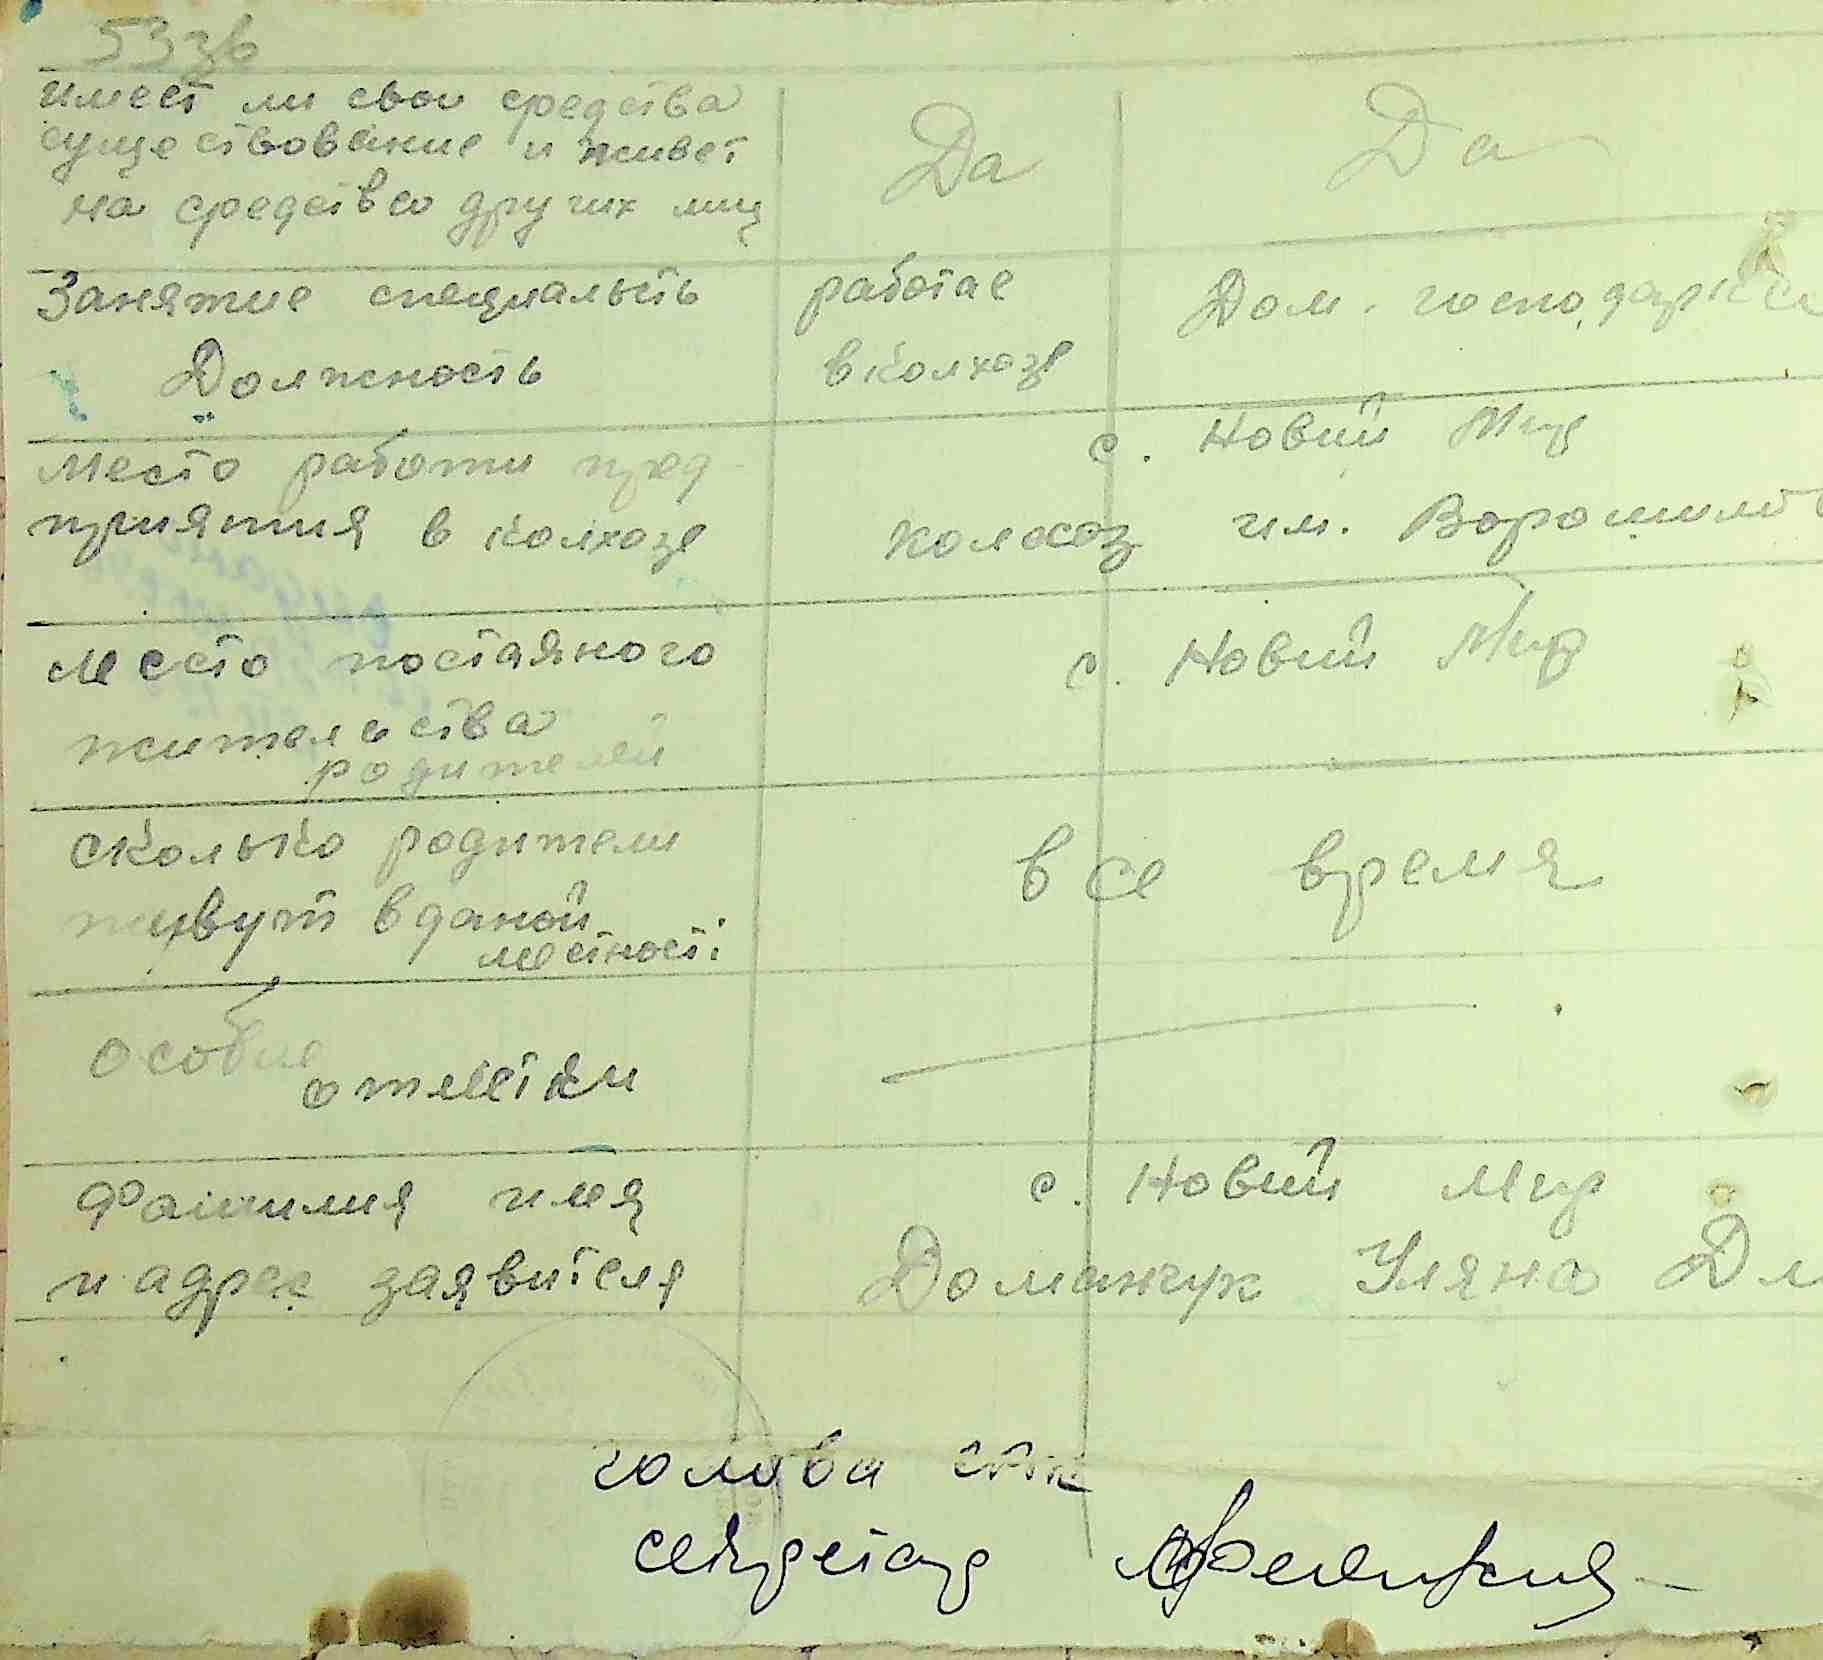 53зв
имеет ли свои средства
существование и живет
на средства других лиц
Да
Да
Занятие специальсть
Должность
работае
в колхозе
Дом. господарка
Место работи пред
приятия в колхозе
с. Новий Мир
колхоз им. Ворошилов
Место постаяного
жительства
родителей
с. Новий Мир
сколько родители
живут в даной
местності
все время
особие
отметки
Фамилия имя
и адрес заявителя
с. Новий Мир
Доманчук Уляна Дм
голова
секретар